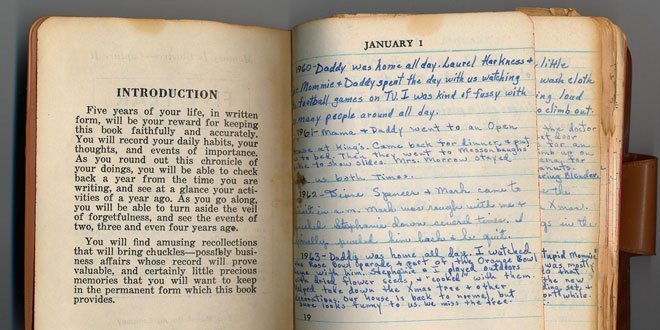 INTRODUCTION
Five years of your life, in written
form, will be your reward for keeping
this book faithfully and accurately.
You will record your daily habits, your
thoughts, and events of importance.
As you round out this chronicle of
your doings, you will be able to check
back a year from the time you are
writing, and see at a glance your activ-
ities of a year ago. As you go along,
you will be able to turn aside the veil
of forgetfulness, and see the events of
two, three and even four years ago.
You will find amusing recollections
that will bring chuckles—possibly busi-
ness affairs whose record will prove
valuable, and certainly little precious
memories that you will want to keep
in the permanent form which this book
provides.
JANUARY 1
1960-Daddy was home all day. Laurel Harkness &
Mommie & Daddy spent the day with us watching
football games on TV. I was kind of fussy with
many people around all day.
1961-Mama & Daddy went to an Open
at King's. Came back for dinner, & put
to bed. Then they went to Masson
to show slides. Mrs. Morrow stayed
us both times.
1962-Diane Spencer & Mark came to
in a.m. Mark was rough with me &
Stephanie down several times. I
finally pushed him back & he quit.
1963-Daddy was home all day. I watched
the Rose Bowl Parade & part of the Orange Bowl
with him. Stephanie & I played outdoors
with dried flower seeds, & "cooked" with them.
helped take down the Xmas tree & other
decorations. Our house is back to normal, but
looks funny to us. We miss the tree.
19
little
wash cloth
ing loud
climb out.
the doctor
door
for an
up on
for
Blander.
the
Xmas.
in the
stupid Mommie
was mostly
that
the new
ding set,